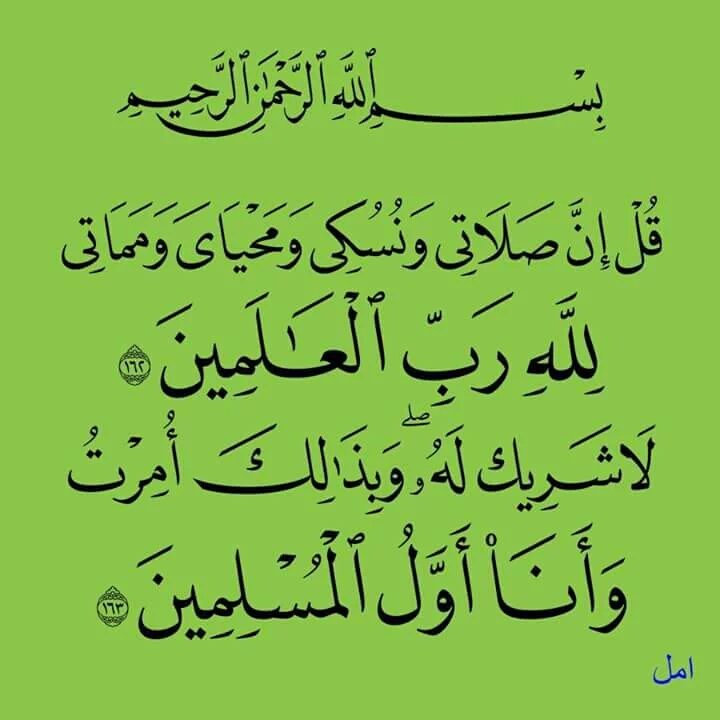 بِسْمِ ٱللَّهِ ٱلرَّحْمَٰنِ ٱلرَّحِيمِ
قُلْ إِنَّ صَلَاتِى وَنُسُكِى وَمَحْيَاىَ وَمَمَاتِى
لِلَّهِ رَبِّ ٱلْعَٰلَمِينَ ١٦٢
لَا شَرِيكَ لَهُۥ ۖ وَبِذَٰلِكَ أُمِرْتُ
وَأَنَا۠ أَوَّلُ ٱلْمُسْلِمِينَ ١٦٣
امل